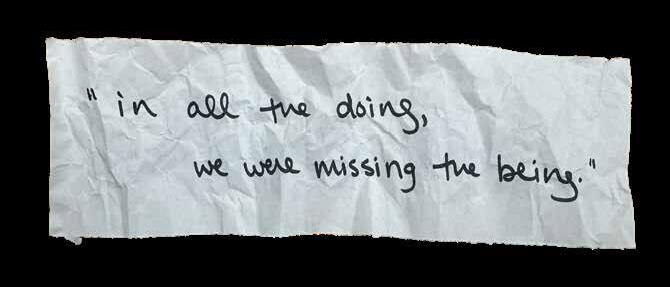 "in all the doing,
we were missing the being."